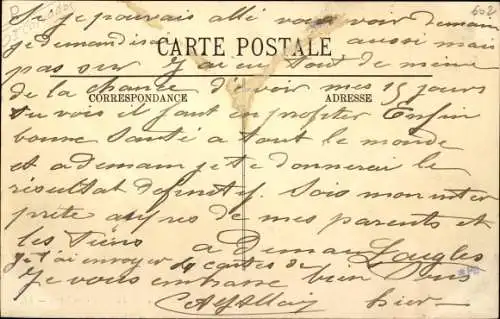 Si je pouvais allé vous voir demain
je demandisai aussi mais
CARTE POSTALE
pas sur J'ai eu tout de meme
de la chance d'avoir mes 15 jours
CORRESPONDANCE ADRESSE
tu vois il faut en profiter Enfin
bonne santé a tout le monde
et a demain je te donnerai le
résultat definitif. Sois mon inter
prete aupres de mes parents et
les tiens a Demain
je t'ai envoyer des cartes de
Je vous embrasse bien
hier
602